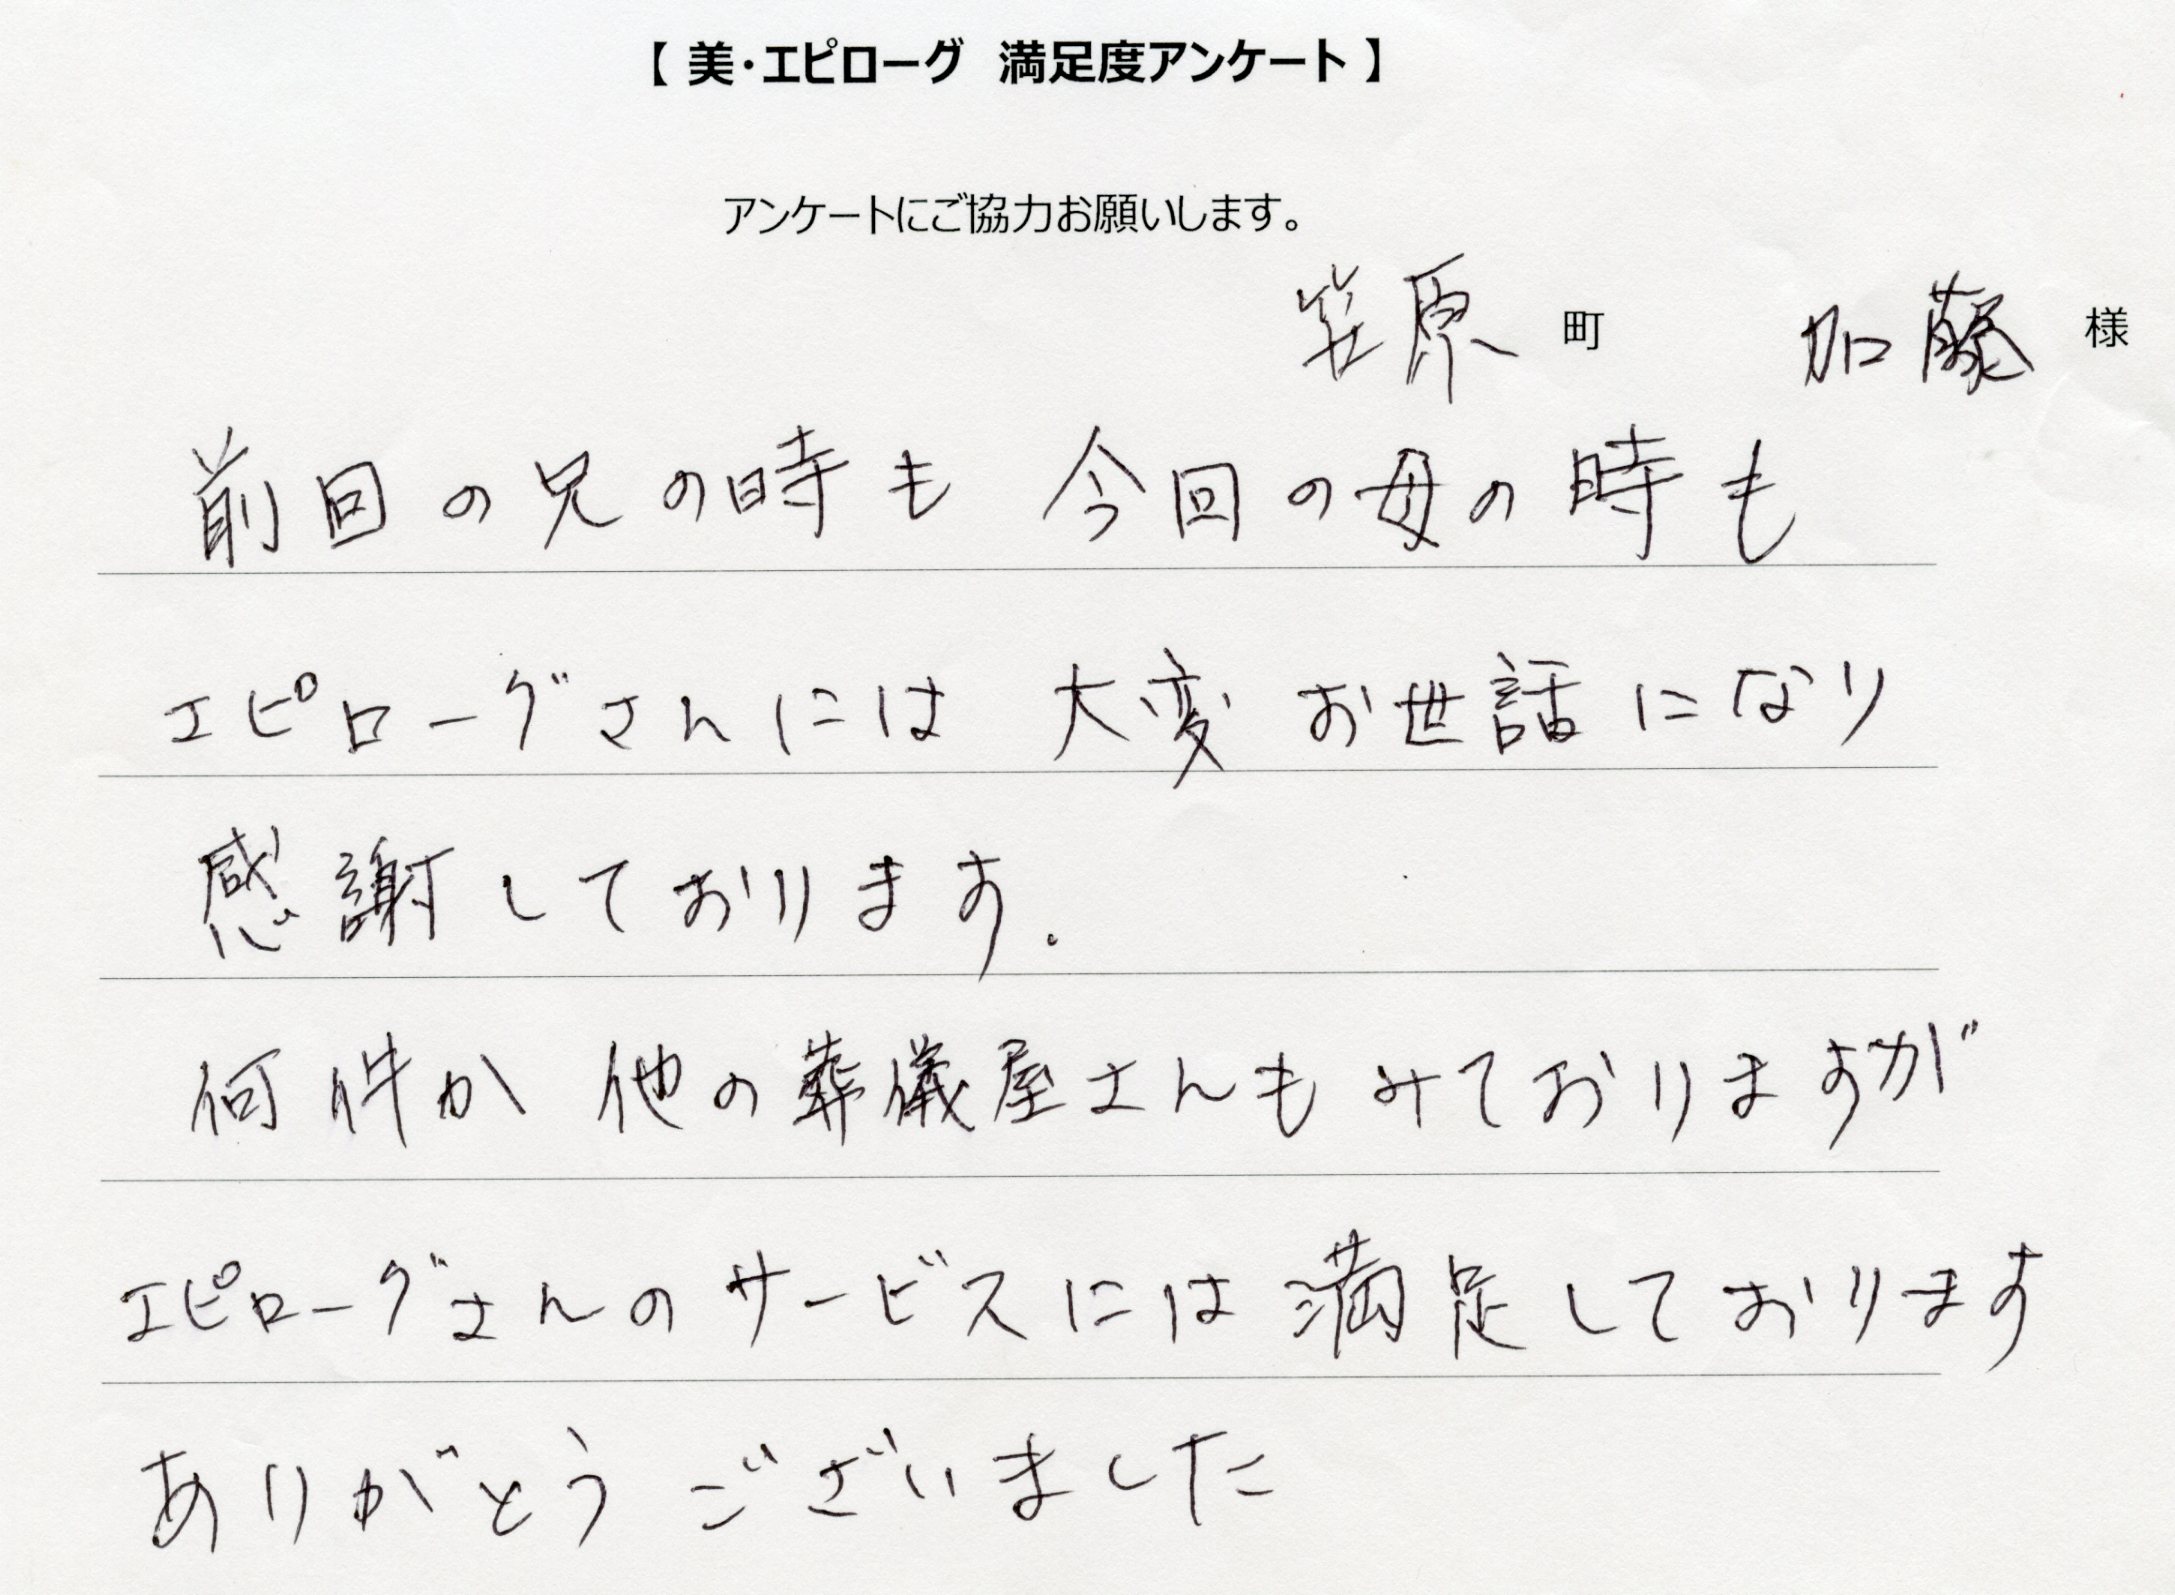 【 美・エピローグ　満足度アンケート 】
アンケートにご協力お願いします。
笠原 町　加藤 様
前回の兄の時も　今回の母の時も
エピローグさんには　大変お世話になり
感謝しております。
何件か　他の葬儀屋さんもみておりますが
エピローグさんのサービスには満足しております
ありがとうございました